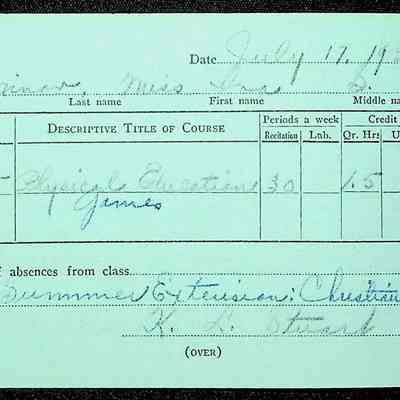 Date July 17, 19
Miss
Last name First name Middle na
DESCRIPTIVE TITLE OF COURSE Periods a week Credit
Recitation Lab. Qr. Hrs. U
Physical Education 30 1.5
Games
f absences from class
Summer Extension: Christian
K. L. Stuart
(OVER)